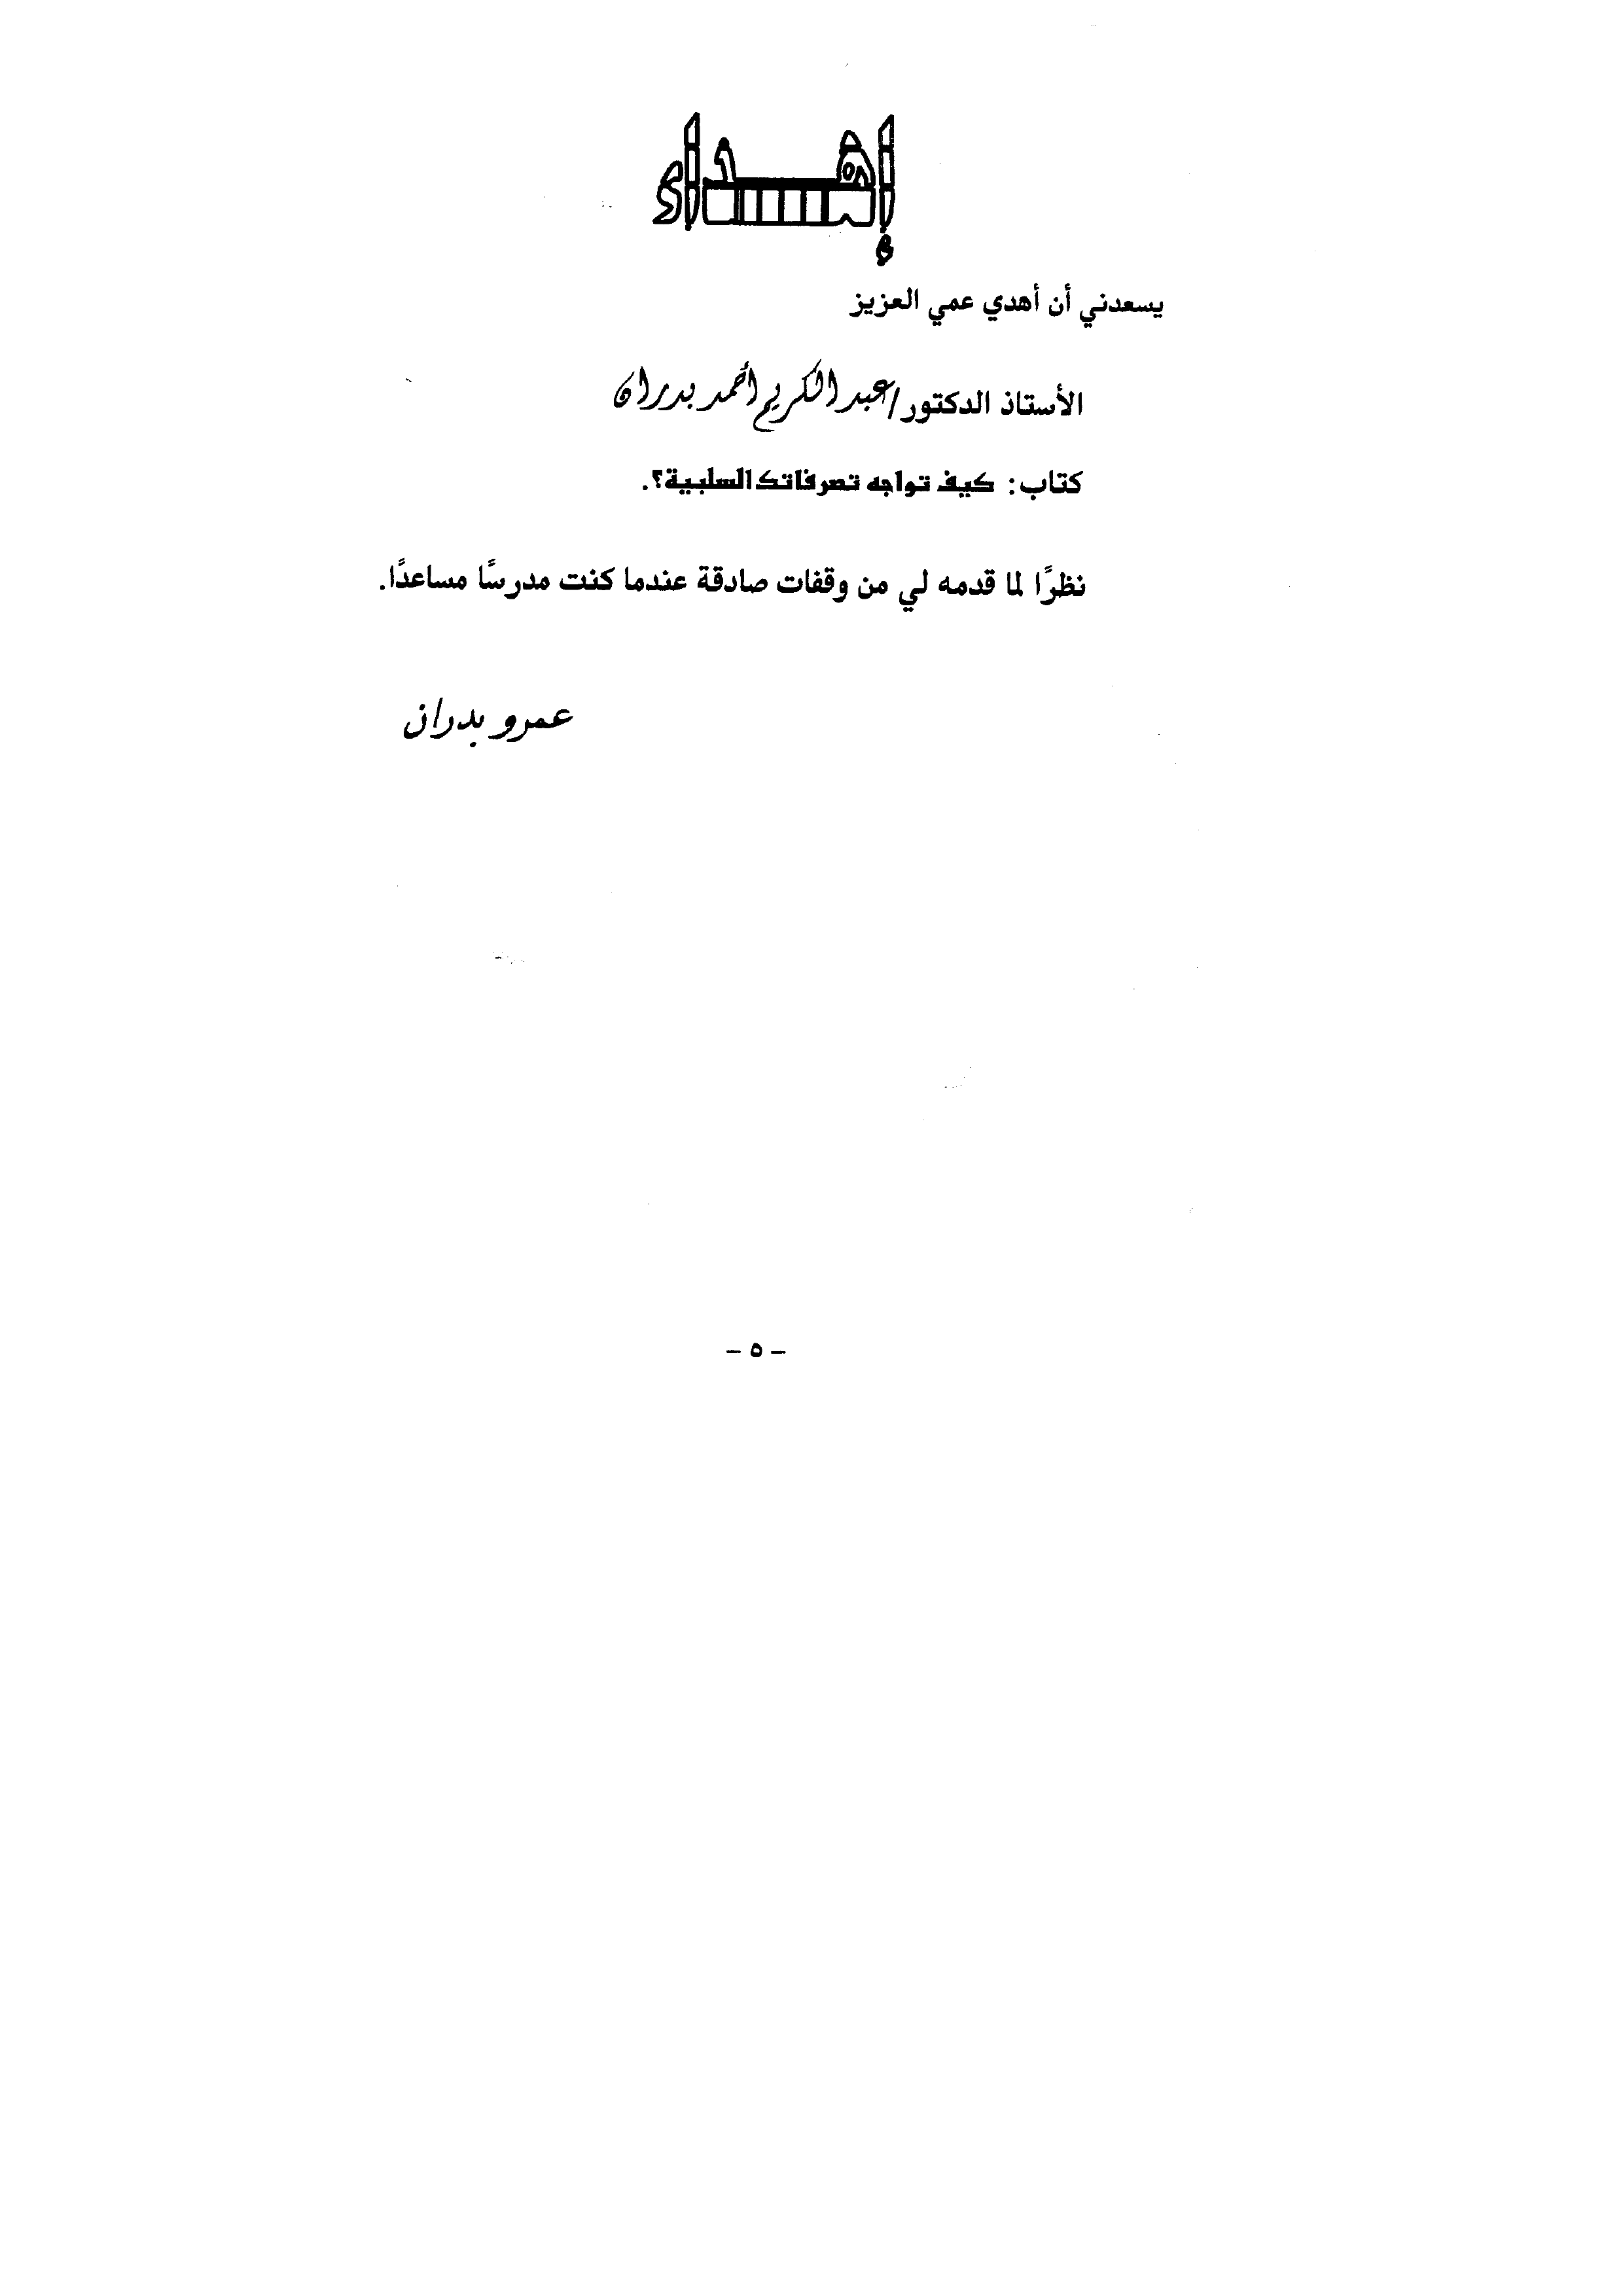 إهداء
يسعدني أن أهدي عمي العزيز
الأستاذ الدكتور/ عبد الكريم أحمد بدران
كتاب: كيف تواجه تصرفاتك السلبية؟.
نظرًا لما قدمه لي من وقفات صادقة عندما كنت مدرسًا مساعدًا.
عمرو بدران
– ٥ –